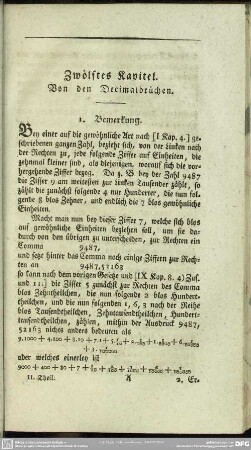 Zwölftes Kapitel.
Von den Decimalbrüchen.
1. Bemerkung.
Bey einer auf die gewöhnliche Art nach [I Kap. 4.] ge-
schriebenen ganzen Zahl, beziehe sich, von der linken nach
der Rechten zu, jede folgende Ziffer auf Einheiten, die
zehnmal kleiner sind, als diejenigen, worauf sich die vor-
hergehende Ziffer bezog. Da z. B bey der Zahl 9487
die Ziffer 9 am weitesten zur linken Tausender zählt, so
zählt die zunächst folgende 4 nur Hunderter, die nun fol-
gende 8 blos Zehner, und endlich die 7 blos gewöhnliche
Einheiten.
Macht man nun bey dieser Ziffer 7, welche sich blos
auf gewöhnliche Einheiten beziehen soll, um sie da-
durch von den übrigen zu unterscheiden, zur Rechten ein
Comma 9487,
und setzt hinter das Comma noch einige Ziffern zur Rech-
ten an 9487,52163
so kann nach dem vorigen Gesetze und [IX Kap. 8. 4) Zus.
und 11.] die Ziffer 5 zunächst zur Rechten des Comma
blos Zehntheilchen, die nun folgende 2 blos Hundert-
theilchen, und die nun folgenden 1, 6, 3 nach der Reihe
blos Tausendtheilchen, Zehntausendtheilchen, Hundert-
tausendtheilchen, zählen, mithin der Ausdruck 9487,
52163 nichts anders bedeuten als
oder welches einerley ist
II. Theil. A 2. Er-